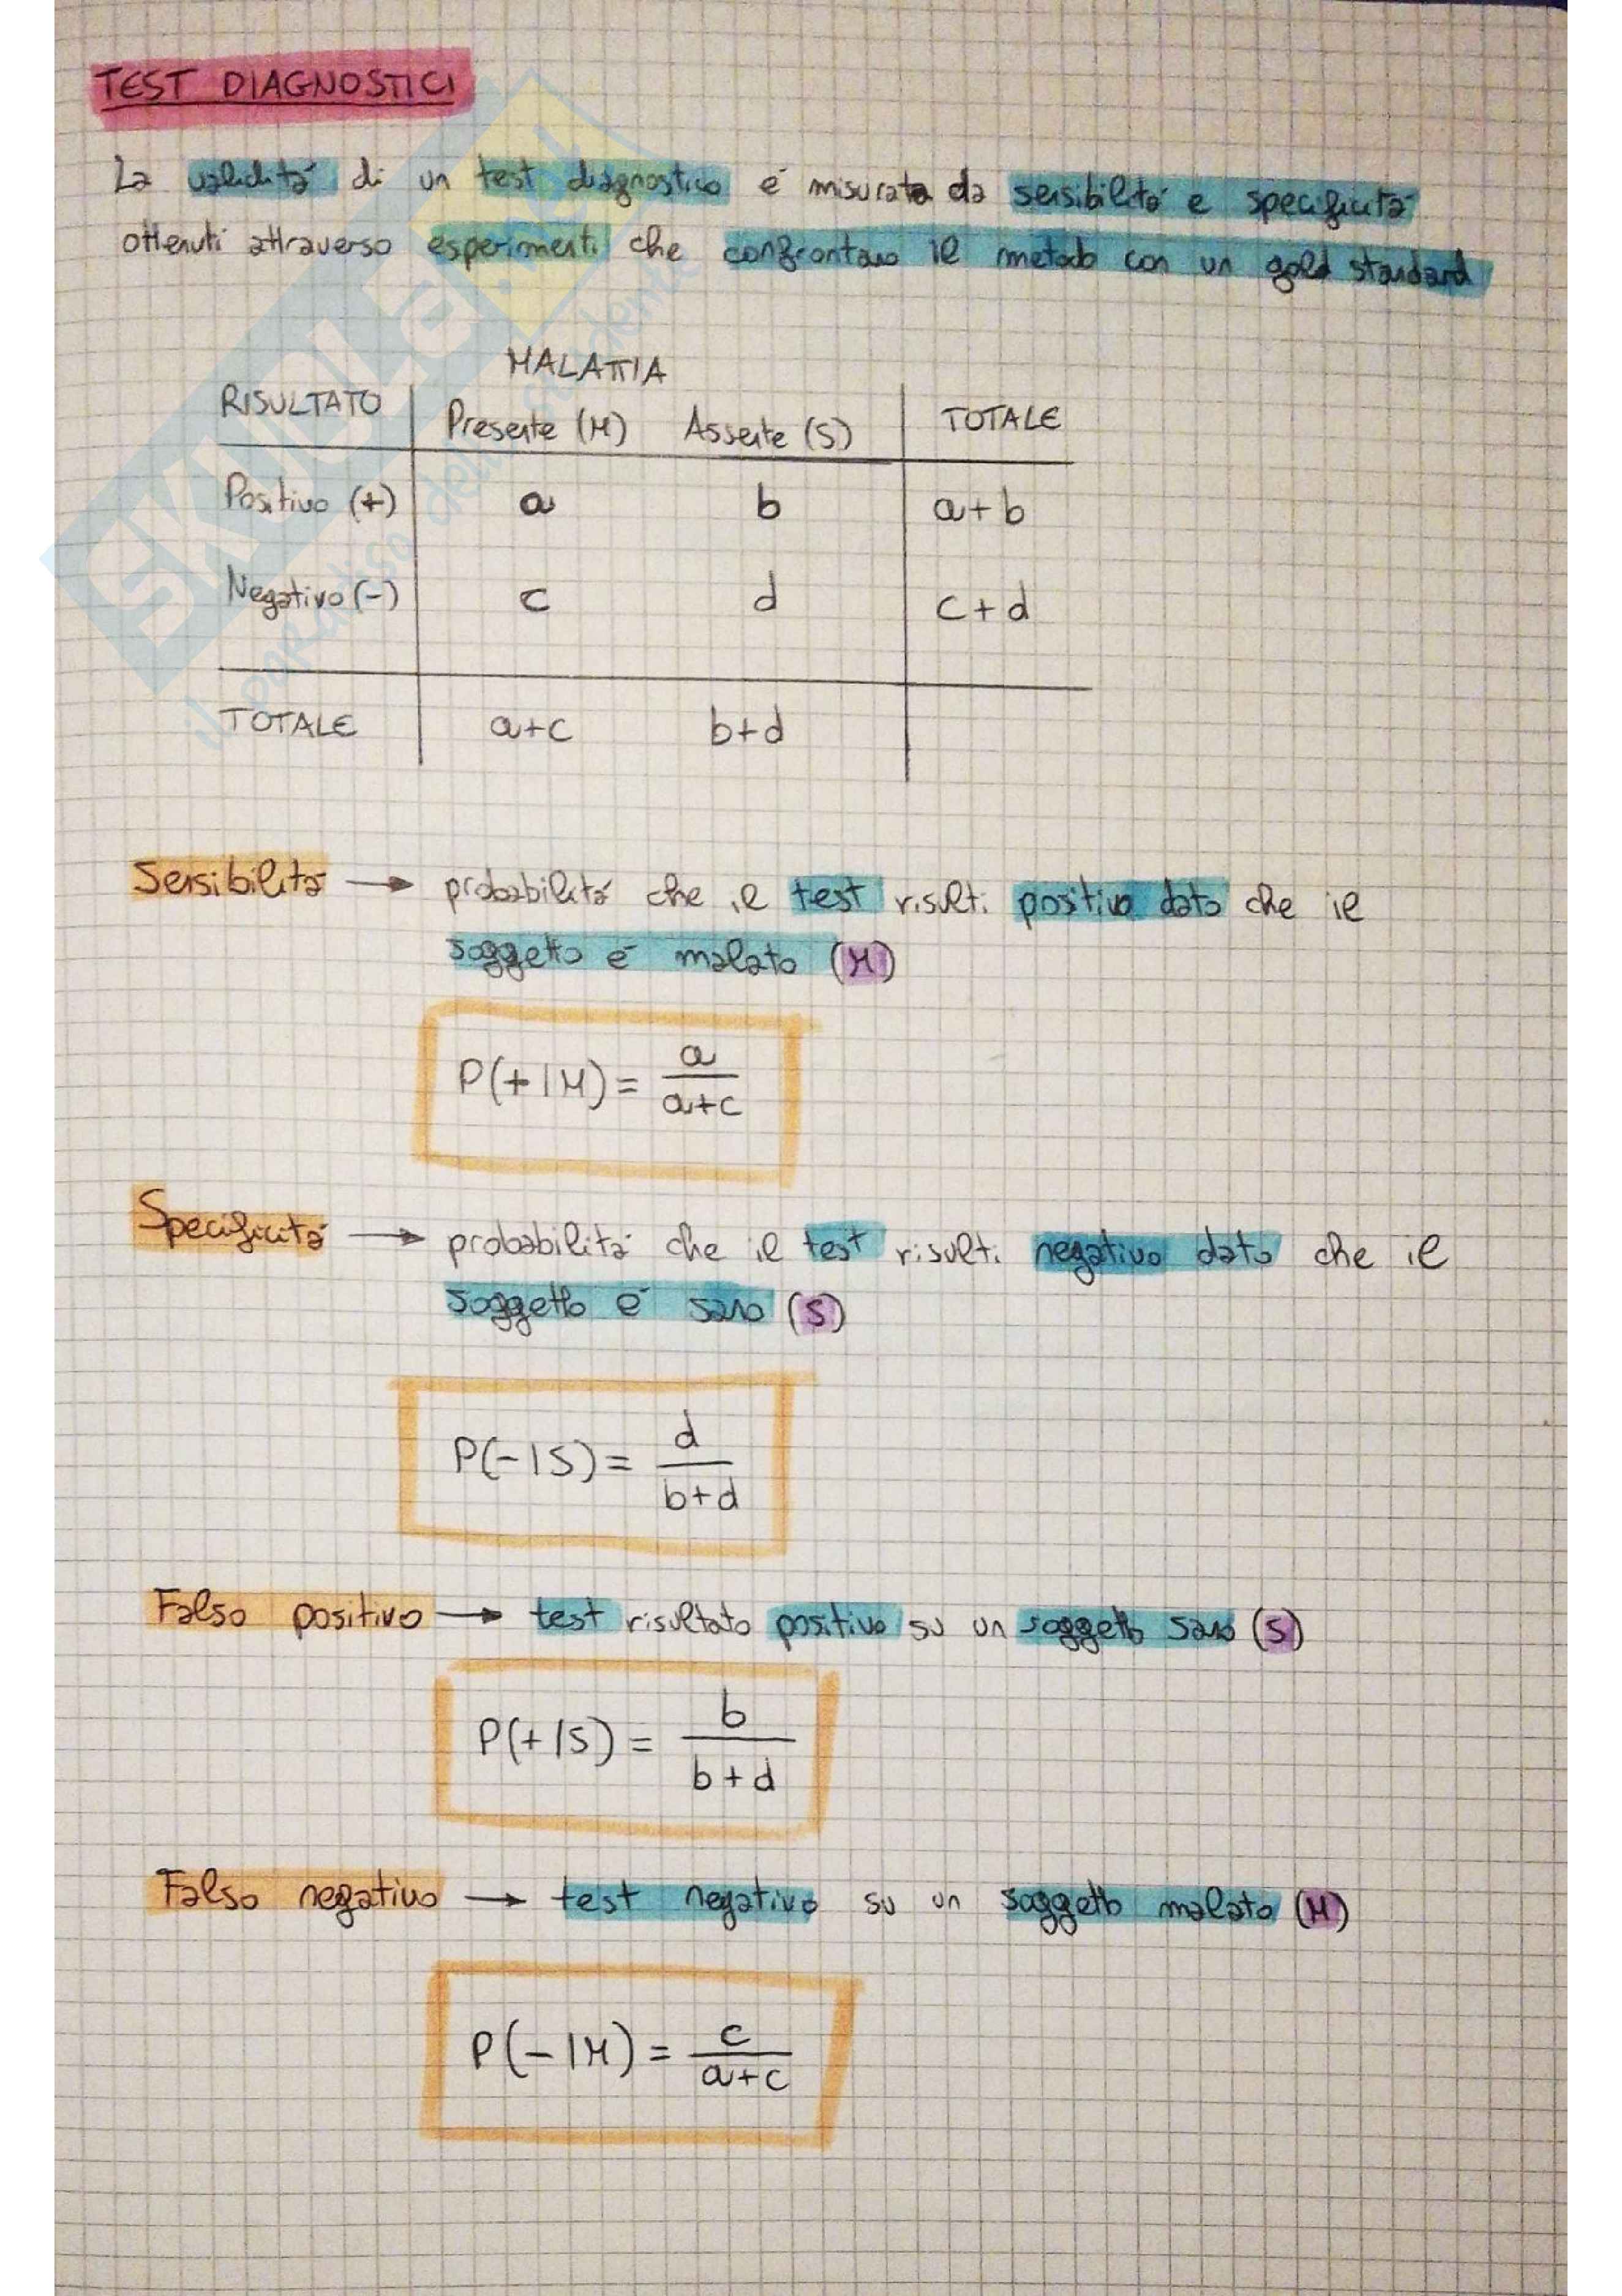 TEST DIAGNOSTICI
La validità di un test diagnostico è misurata da sensibilità e specificità
ottenuti attraverso esperimenti che confrontano il metodo con un gold standard
MALATTIA
RISULTATO Presente (M) Assente (S) TOTALE
Positivo (+) a b a+b
Negativo (-) c d c+d
TOTALE a+c b+d
Sensibilità → probabilità che il test risulti positivo dato che il
soggetto è malato (M)
P(+|M) = a/(a+c)
Specificità → probabilità che il test risulti negativo dato che il
soggetto è sano (S)
P(-|S) = d/(b+d)
Falso positivo → test risultato positivo su un soggetto sano (S)
P(+|S) = b/(b+d)
Falso negativo → test negativo su un soggetto malato (M)
P(-|M) = c/(a+c)
SKUOLA.net
il paradiso dello studente